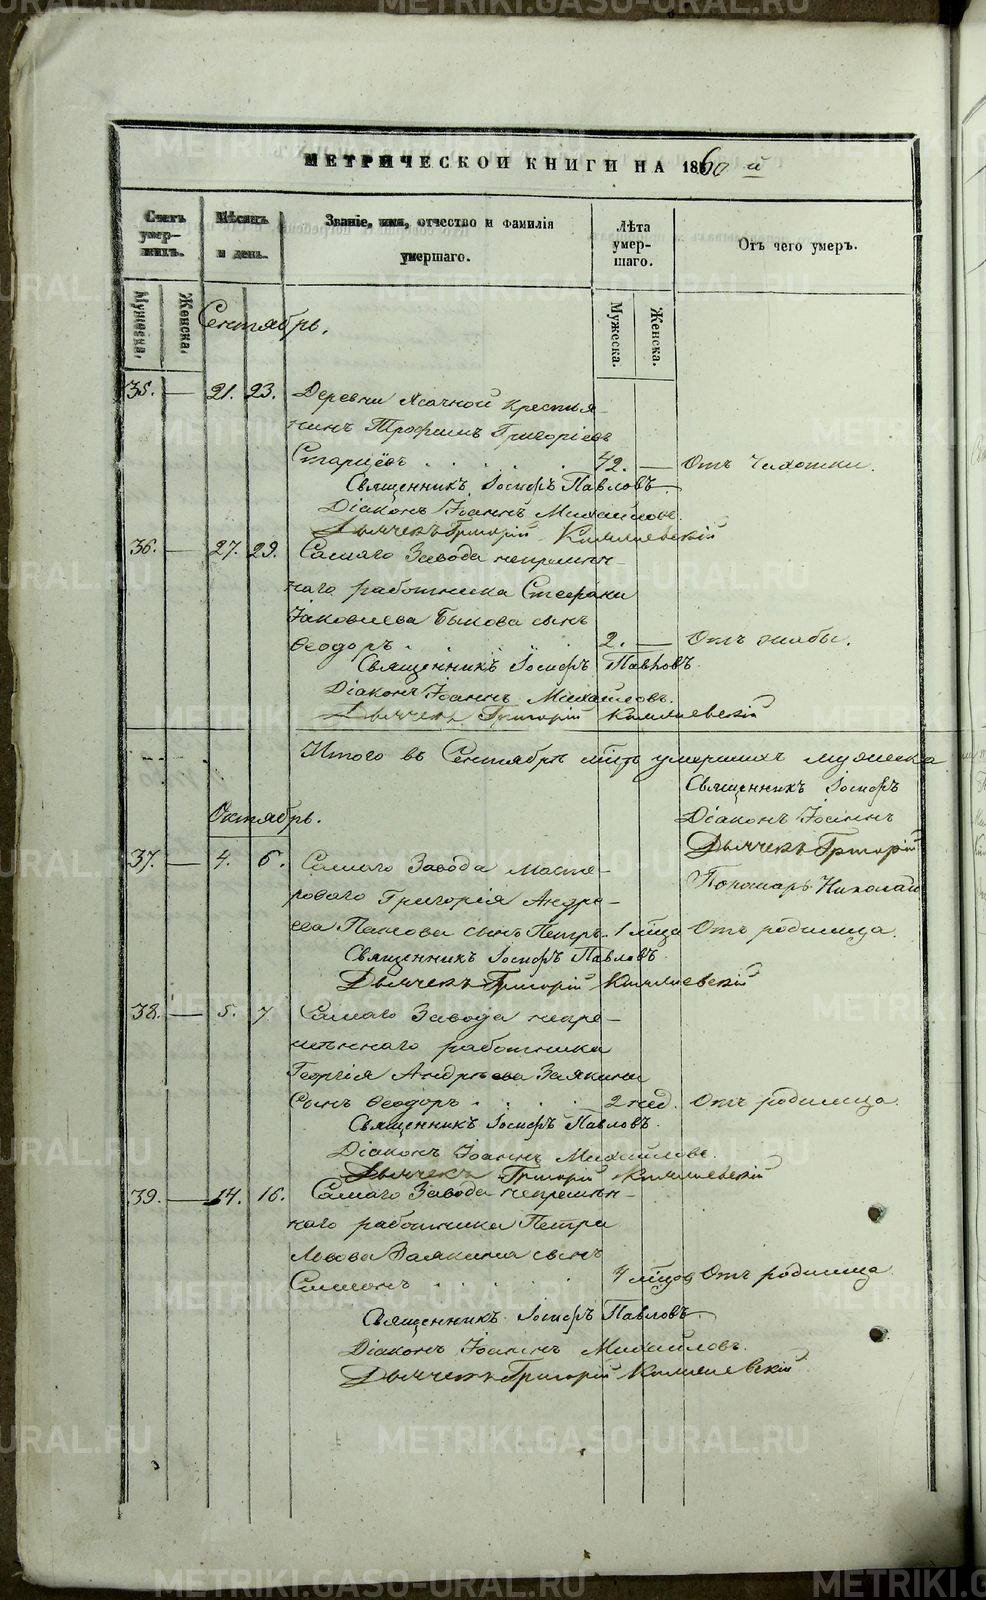 METRIKI.GASO-URAL.RU
МЕТРИЧЕСКОЙ КНИГИ НА 1860 й
Счетъ умер-шихъ.
Мѣсяцъ и день.
Званіе, имя, отчество и фамилія умершаго.
Лѣта умер-шаго.
Отъ чего умеръ.
Мужеска.
Женска.
Мужеска.
Женска.
Сентябрь.
35. — 21. 23. Деревни Ясачной крестья-
нинъ Трофимъ Григоріевъ
Старцёвъ . . . . . 42. — Отъ Чахотки.
Священникъ Іосифъ Павловъ
Діаконъ Іоаннъ Михайловъ.
Дьячекъ Григорій
36. — 27. 29. Самаго Завода непремѣн-
наго работника Стефана
Іаковлева Быкова сынъ
Ѳеодоръ . . . . 2. — Отъ жабы.
Священникъ Іосифъ Павловъ.
Діаконъ Іоаннъ Михайловъ.
Дьячекъ Григорій
Итого въ Сентябрѣ мцѣ умершихъ мужеска
Священникъ Іосифъ
Діаконъ Іоаннъ
Дьячекъ Григорій
Пономарь Николай
Октябрь.
37. — 4. 6. Самаго Завода масте-
роваго Григорія Андре-
ева сынъ Петръ. 1 мѣца Отъ родимца.
Священникъ Іосифъ Павловъ.
Дьячекъ Григорій
38. — 5. 7. Самаго Завода непре-
мѣннаго работника
Георгія Андреева Заякина
Сынъ Ѳеодоръ . . . . 2 нед. Отъ родимца.
Священникъ Іосифъ Павловъ.
Діаконъ Іоаннъ Михайловъ.
Дьячекъ Григорій
39. — 14. 16. Самаго Завода непремѣн-
наго работника Петра
Львова Заякина сынъ
Симеонъ . . . . . Отъ родимца
Священникъ Іосифъ Павловъ
Діаконъ Іоаннъ Михайловъ.
Дьячекъ Григорій